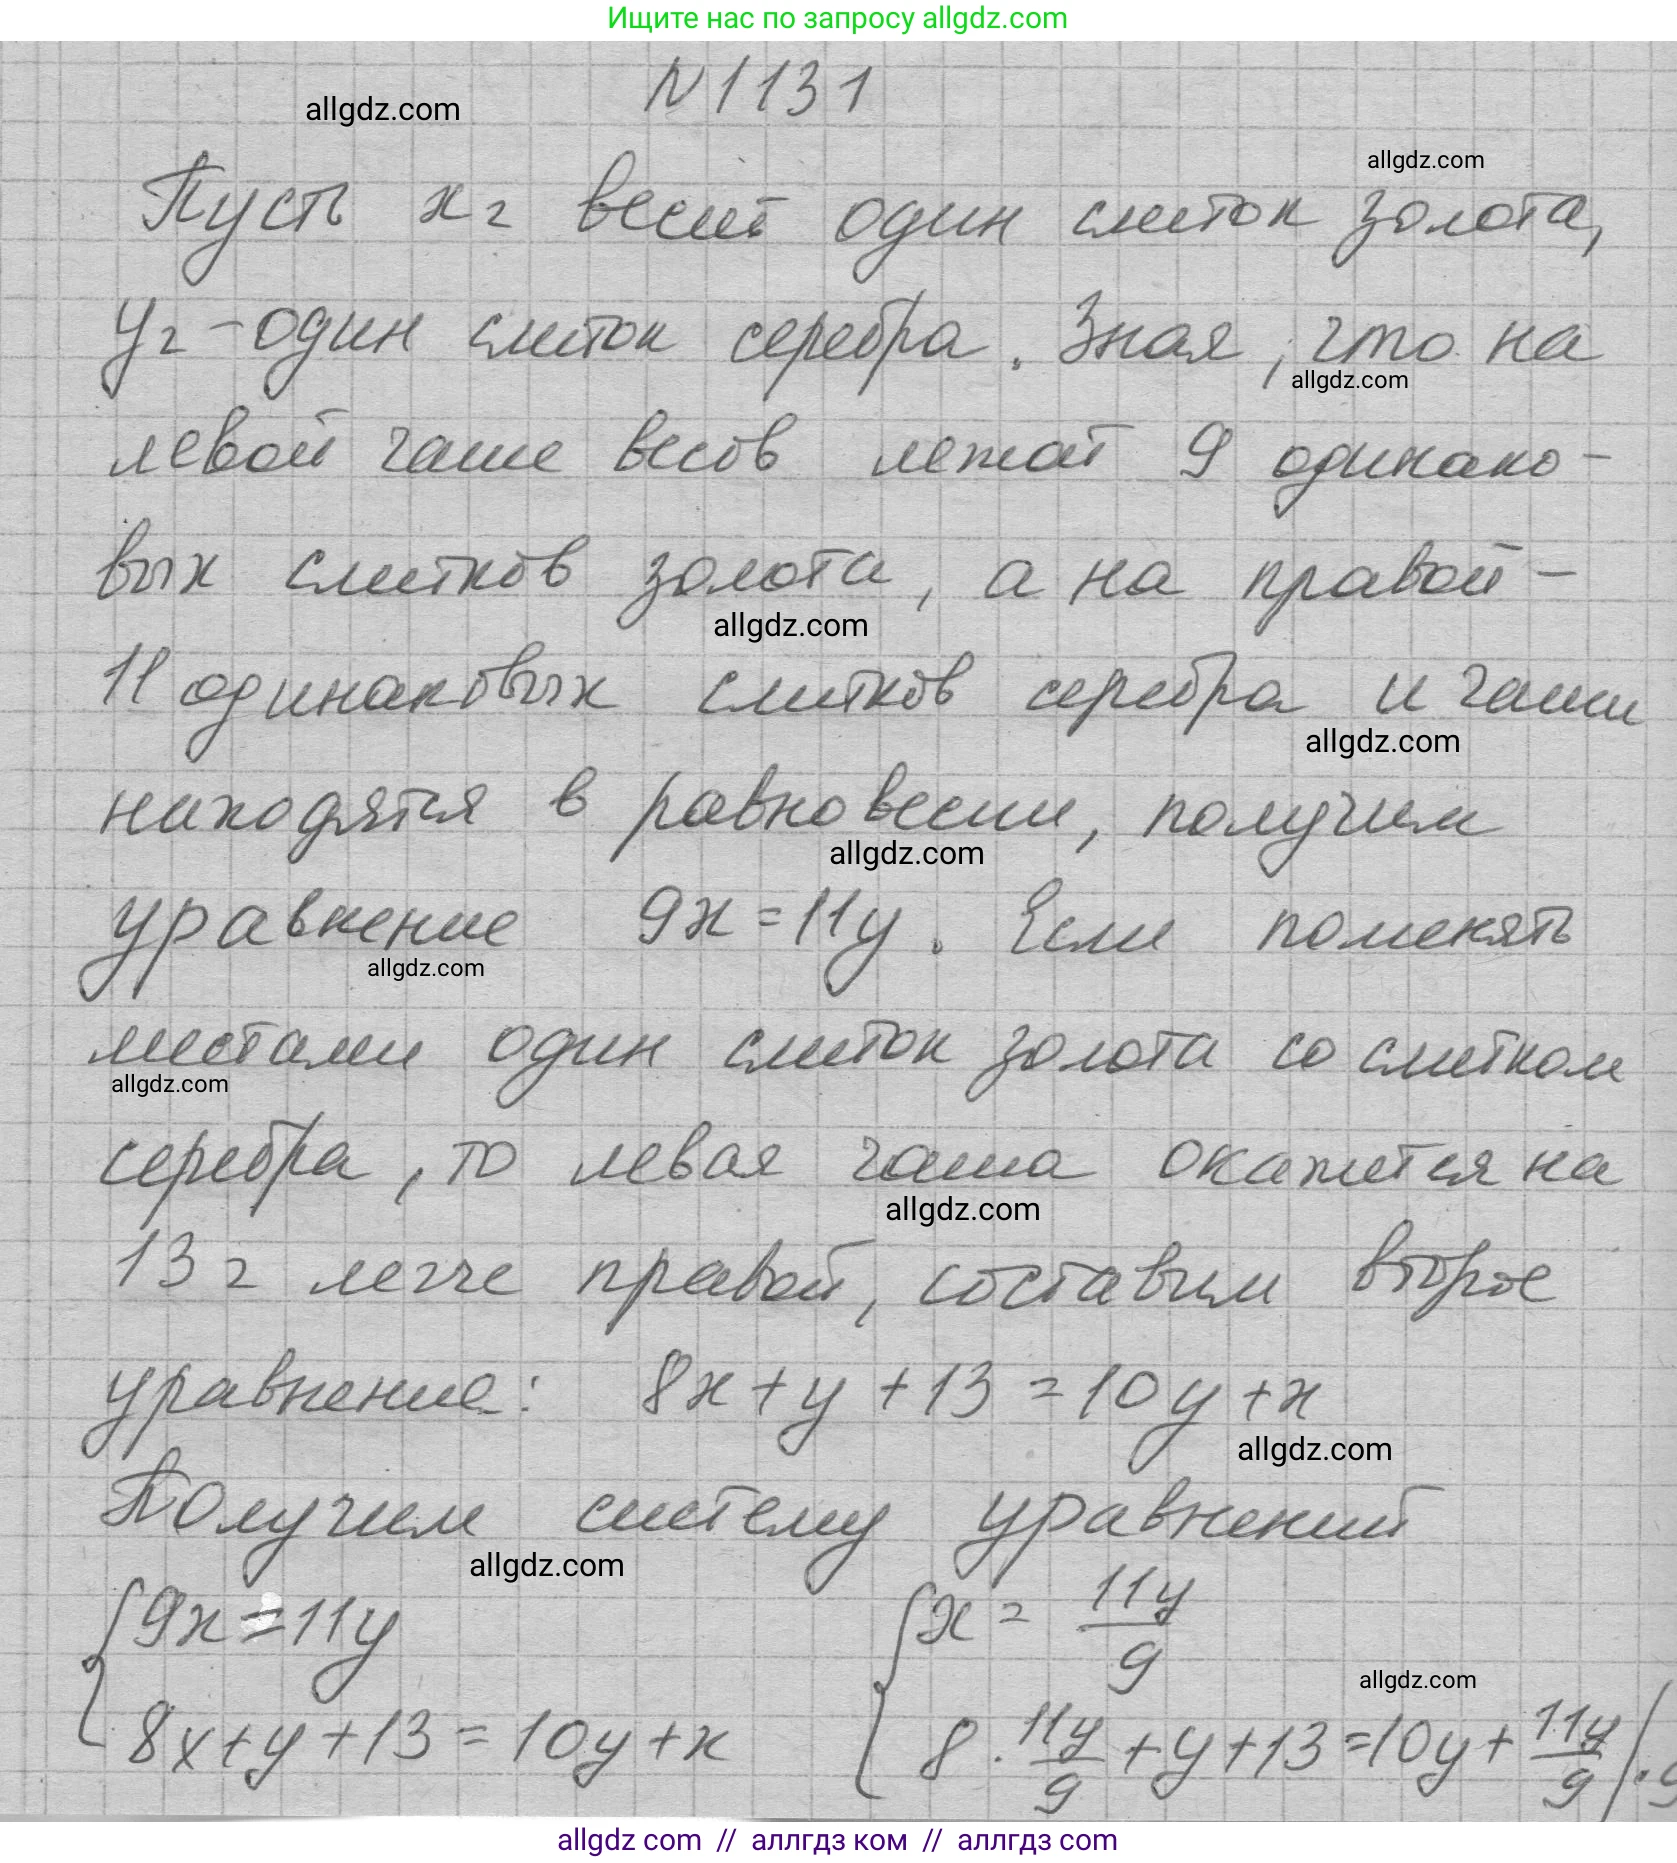 Ищите нас по запросу allgdz.com
N 1131
allgdz.com
allgdz.com
Пусть x г весит один слиток золота,
y г - один слиток серебра. Зная, что на
allgdz.com
левой чаше весов лежат 9 одинако-
вых слитков золота, а на правой -
allgdz.com
11 одинаковых слитков серебра и чаши
allgdz.com
находятся в равновесии, получим
allgdz.com
уравнение 9x = 11y. Если поменять
allgdz.com
местами один слиток золота со слитком
allgdz.com
серебра, то левая чаша окажется на
allgdz.com
13 г легче правой, составим второе
уравнение: 8x + y + 13 = 10y + x
allgdz.com
Получим систему уравнений
allgdz.com
{ 9x = 11y { x = 11y/9
allgdz.com
8x + y + 13 = 10y + x 8 · 11y/9 + y + 13 = 10y + 11y/9 | · 9
allgdz com // аллгдз ком // аллгдз com